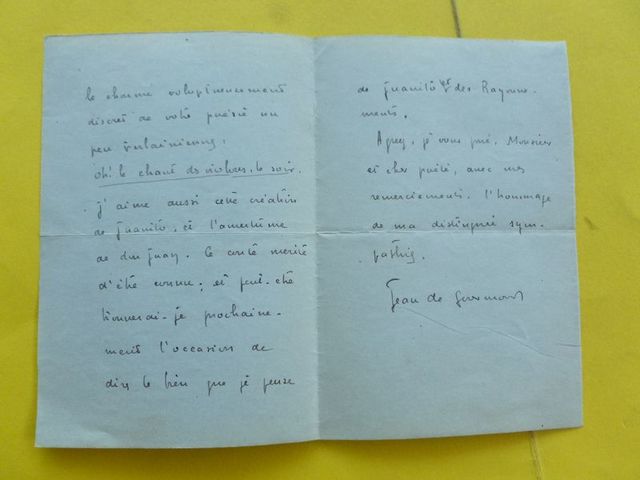 le charme voluptueusement
discret de votre poésie un
peu verlainienne.
oh! le chant des violons, le soir.
j'aime aussi cette création
de Juanito, et l'amertume
de don Juan. Ce conte mérite
d'être connu; et peut-être
trouverai-je prochaine-
ment l'occasion de
dire le bien que je pense
de Juanito et des Rayonne-
ments.
Agréez, je vous prie, Monsieur
et cher poète, avec mes
remerciements, l'hommage
de ma distinguée sym-
pathie.
Jean de Gourmont